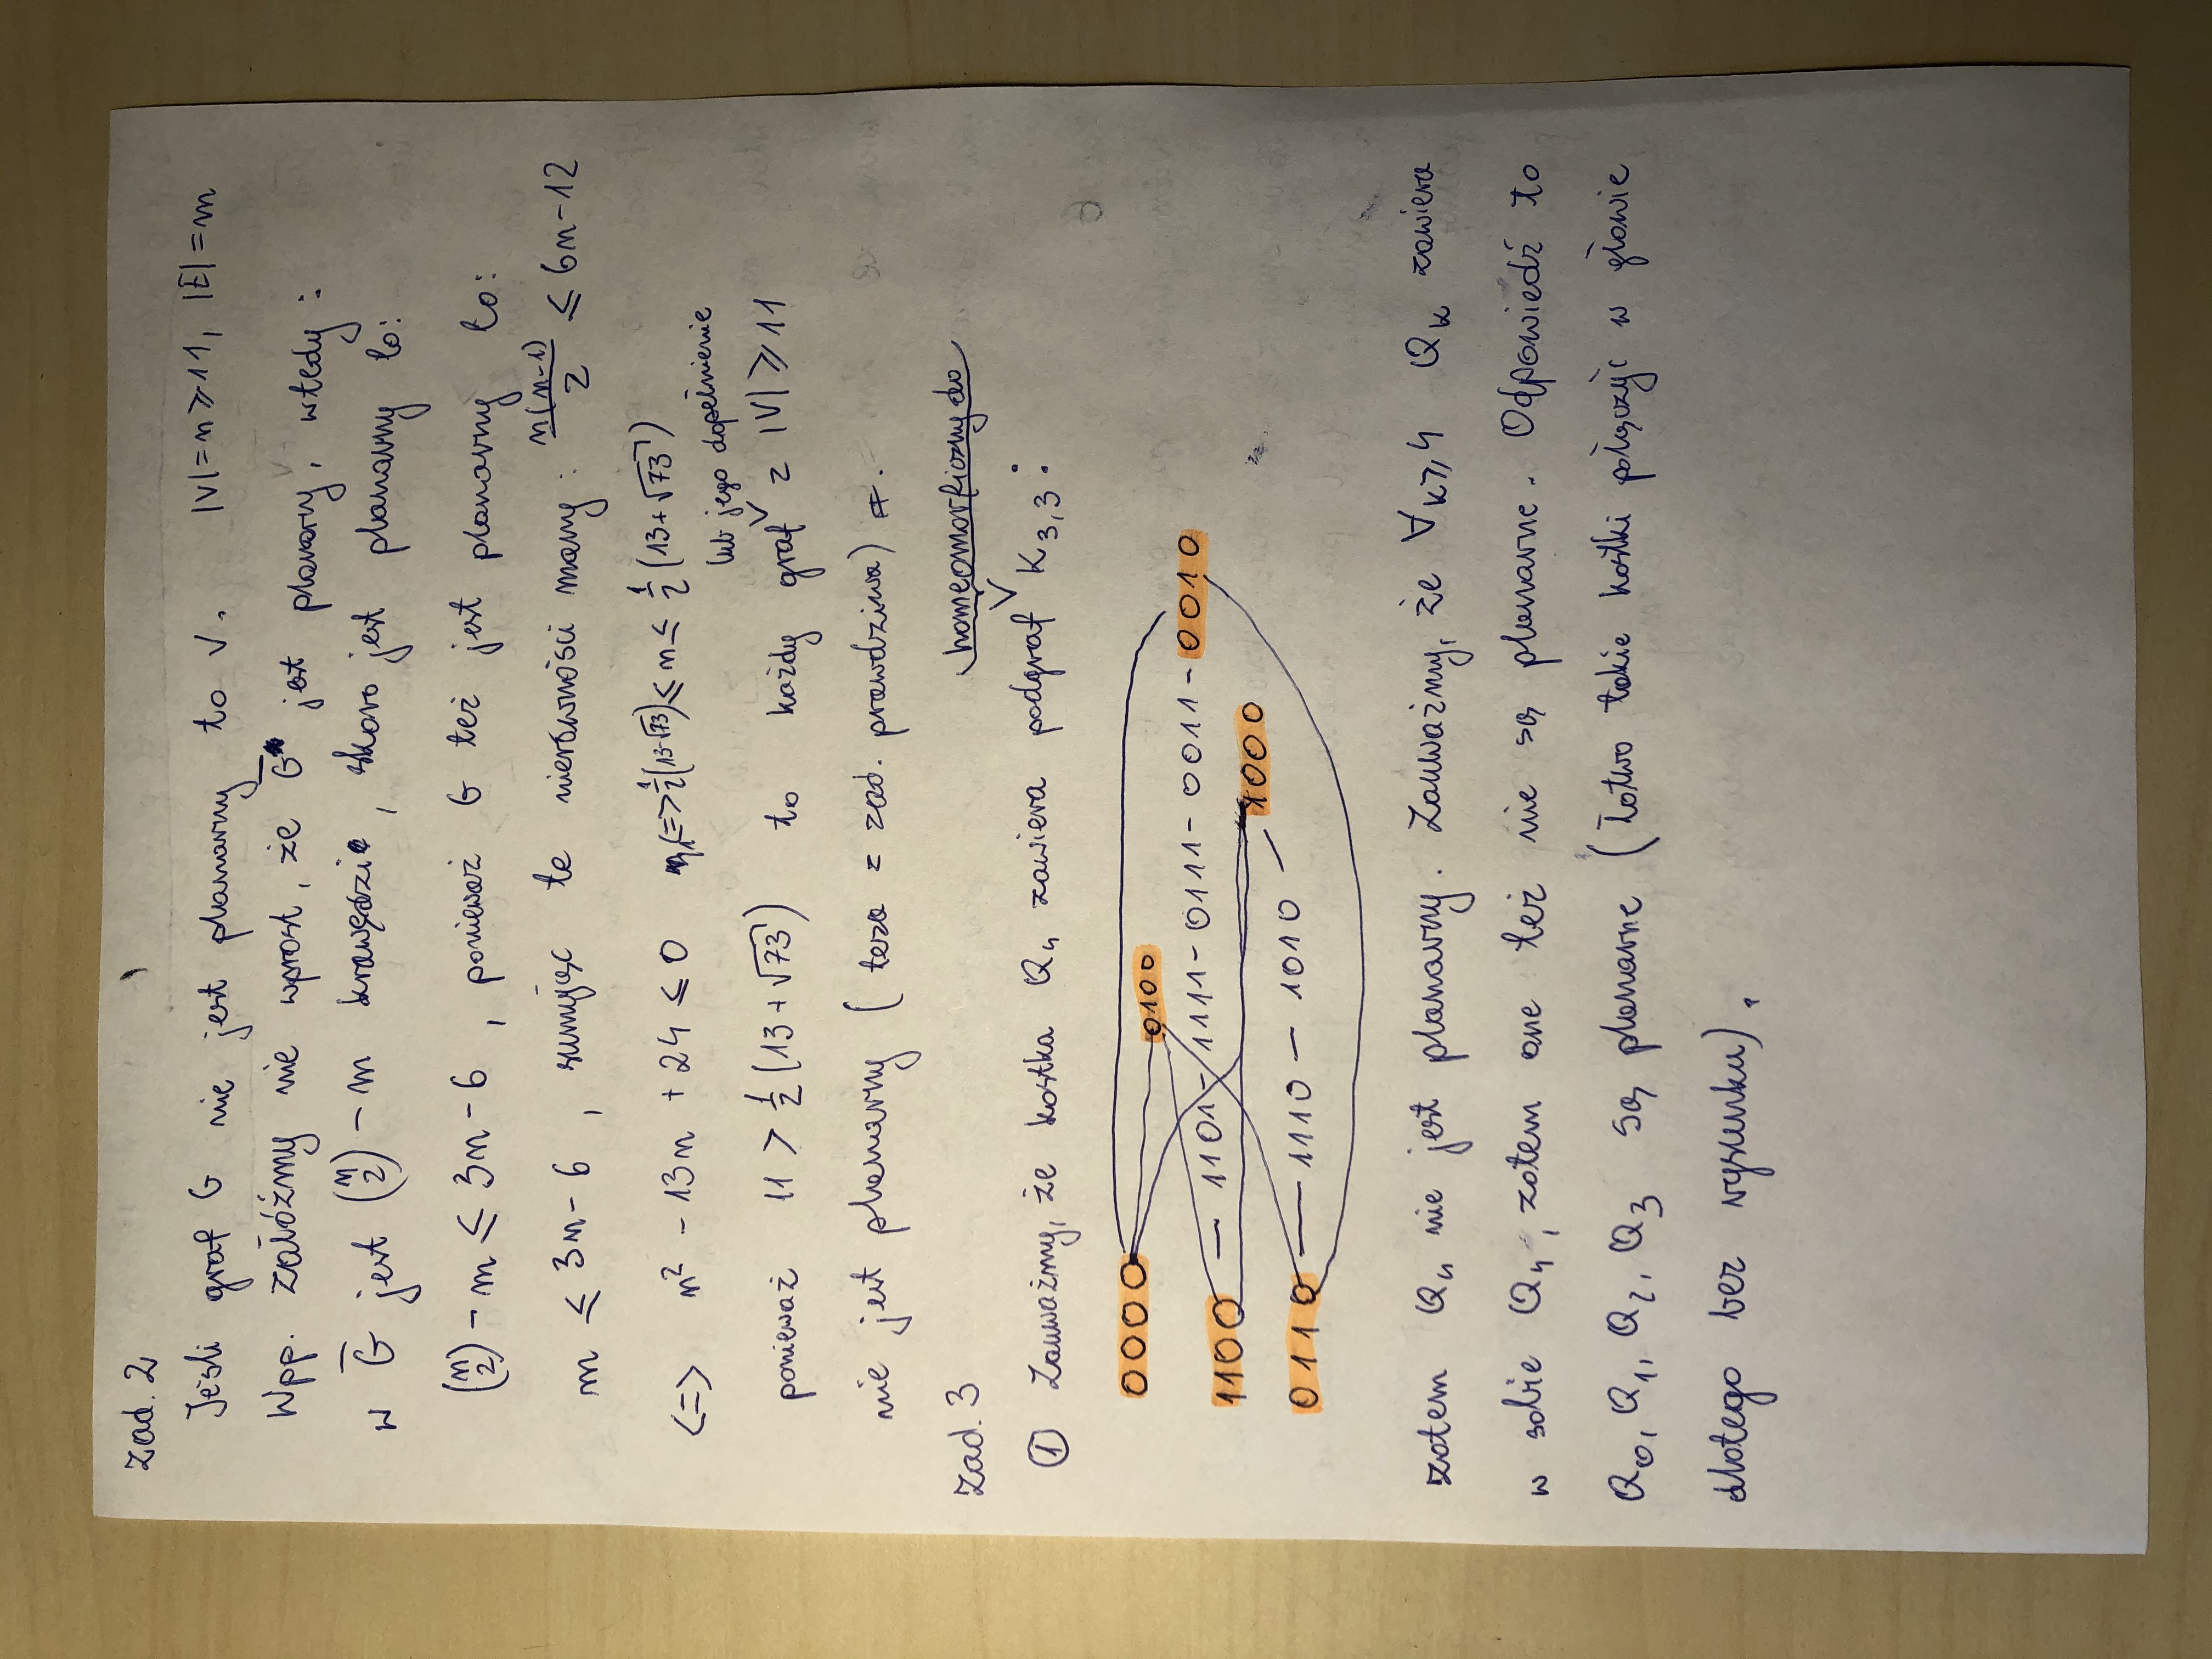 Zad. 2
Jeśli graf G nie jest planarny to V. |V|=n⩾11, |E|=m
Wpp. załóżmy nie wprost, że G̅ jest planarny, wtedy:
w G̅ jest (n 2) - m krawędzi, skoro jest planarny to:
(n 2) - m ⩽ 3n - 6, ponieważ G też jest planarny to:
m ⩽ 3n - 6, sumując te nierówności mamy: n(n-1)/2 ⩽ 6n-12
<=> n² - 13n + 24 ⩽ 0 <=> 1/2(13-√73) ⩽ n ⩽ 1/2(13+√73)
lub jego dopełnienie
ponieważ 11 > 1/2(13+√73) to każdy graf ∨ z |V|⩾11
nie jest planarny (teza z zad. prawdziwa)
Zad. 3
homeomorficzny do
① Zauważmy, że kostka Q₄ zawiera podgraf ∨ K3,3:
0000
0100
1100 — 1101 - 1111 - 0111 - 0011 - 0010
1000
0110 — 1110 — 1010 —
zatem Q₄ nie jest planarny. Zauważmy, że ∀k⩾4 Qk zawiera
w sobie Q₄, zatem one też nie są planarne. Odpowiedź to
Q₀, Q₁, Q₂, Q₃ są planarne (łatwo takie kostki połączyć w głowie
dlatego bez rysunku).